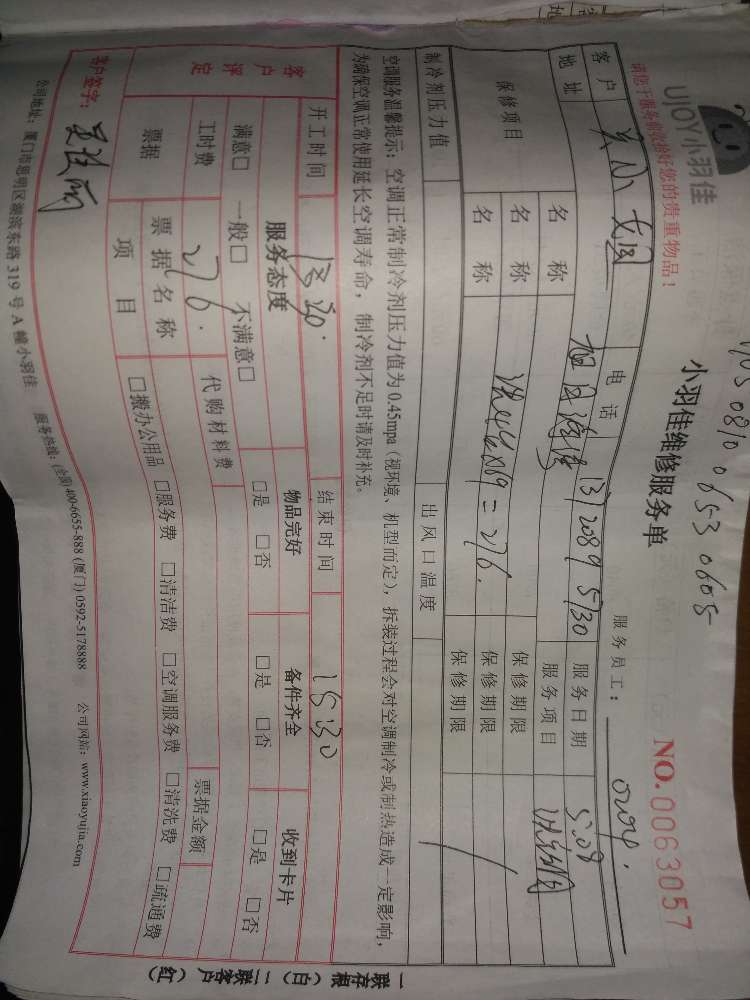 0810 0653 0605
UJOY小羽佳
小羽佳维修服务单
NO.0063057
请您于服务前收检好您的贵重物品!
服务员工:
客户
电话 13120895130
服务日期 5.08
地址
服务项目
保修项目
名称
保修期限
名称 =276.
保修期限
名称
保修期限
制冷剂压力值
出风口温度
空调服务温馨提示:空调正常制冷剂压力值为0.45mpa(视环境、机型而定),拆装过程会对空调制冷或制热造成一定影响,
为确保空调正常使用延长空调寿命,制冷剂不足时请及时补充。
开工时间 13:30.
结束时间 15:30
客户评定
服务态度 物品完好 备件齐全 收到卡片
满意□ 一般□ 不满意□ □是 □否 □是 □否 □是 □否
工时费 276.
代购材料费
票据
票据名称
票据金额
项目
□搬办公用品 □服务费 □清洁费 □空调服务费 □清洗费 □疏通费
客户签字:
公司地址:厦门市思明区湖滨东路319号A幢小羽佳 服务热线:(全国)400-6655-888 (厦门)0592-5178888 公司网站:www.xiaoyujia.com
一联存根(白)二联客户(红)